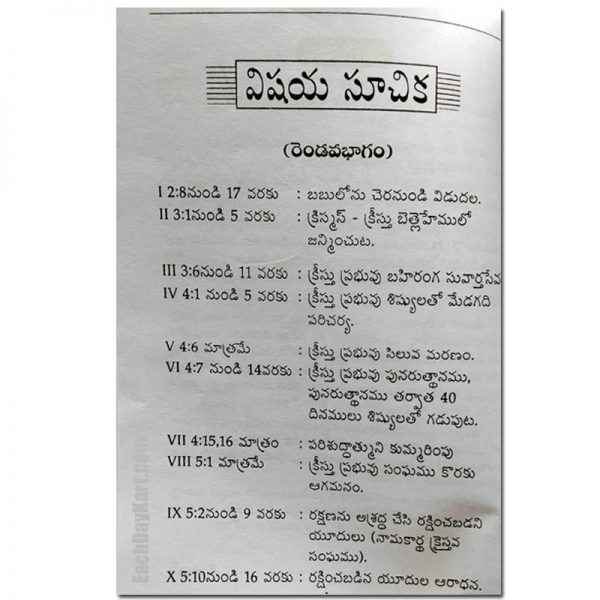 విషయ సూచిక
(రెండవభాగం)
I 2:8నుండి 17 వరకు : బబులోను చెరనుండి విడుదల.
II 3:1నుండి 5 వరకు : క్రిస్మస్ - క్రీస్తు బెత్లెహేములో
జన్మించుట.
III 3:6నుండి 11 వరకు : క్రీస్తు ప్రభువు బహిరంగ సువార్తసేవ
IV 4:1 నుండి 5 వరకు : క్రీస్తు ప్రభువు శిష్యులతో మేడగది
పరిచర్య.
V 4:6 మాత్రమే : క్రీస్తు ప్రభువు సిలువ మరణం.
VI 4:7 నుండి 14వరకు : క్రీస్తు ప్రభువు పునరుత్థానము,
పునరుత్థానము తర్వాత 40
దినములు శిష్యులతో గడుపుట.
VII 4:15,16 మాత్రం : పరిశుద్ధాత్ముని కుమ్మరింపు
VIII 5:1 మాత్రమే : క్రీస్తు ప్రభువు సంఘము కొరకు
ఆగమనం.
IX 5:2నుండి 9 వరకు : రక్షణను అశ్రద్ధ చేసి రక్షించబడని
యూదులు (నామకార్థ క్రైస్తవ
సంఘము).
X 5:10నుండి 16 వరకు : రక్షించబడిన యూదుల ఆరాధన.
EachDayKart.com